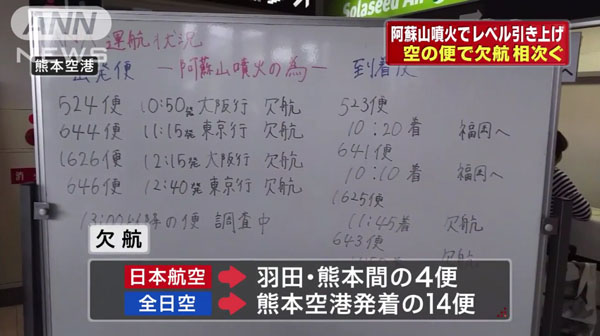 ANN
NEWS
Solaseed Air
阿蘇山噴火でレベル引き上げ
空の便で欠航 相次ぐ
熊本空港
運航状況
出発便 ―阿蘇山噴火の為― 到着便
524便 10:50発 大阪行 欠航
644便 11:15発 東京行 欠航
1626便 12:15発 大阪行 欠航
646便 12:40発 東京行 欠航
13:00以降の便 調査中
523便
10:20着 福岡へ
641便
10:10着 福岡へ
1625便
11:45着 欠航
643便
欠航
欠航
日本航空 羽田・熊本間の4便
全日空 熊本空港発着の14便